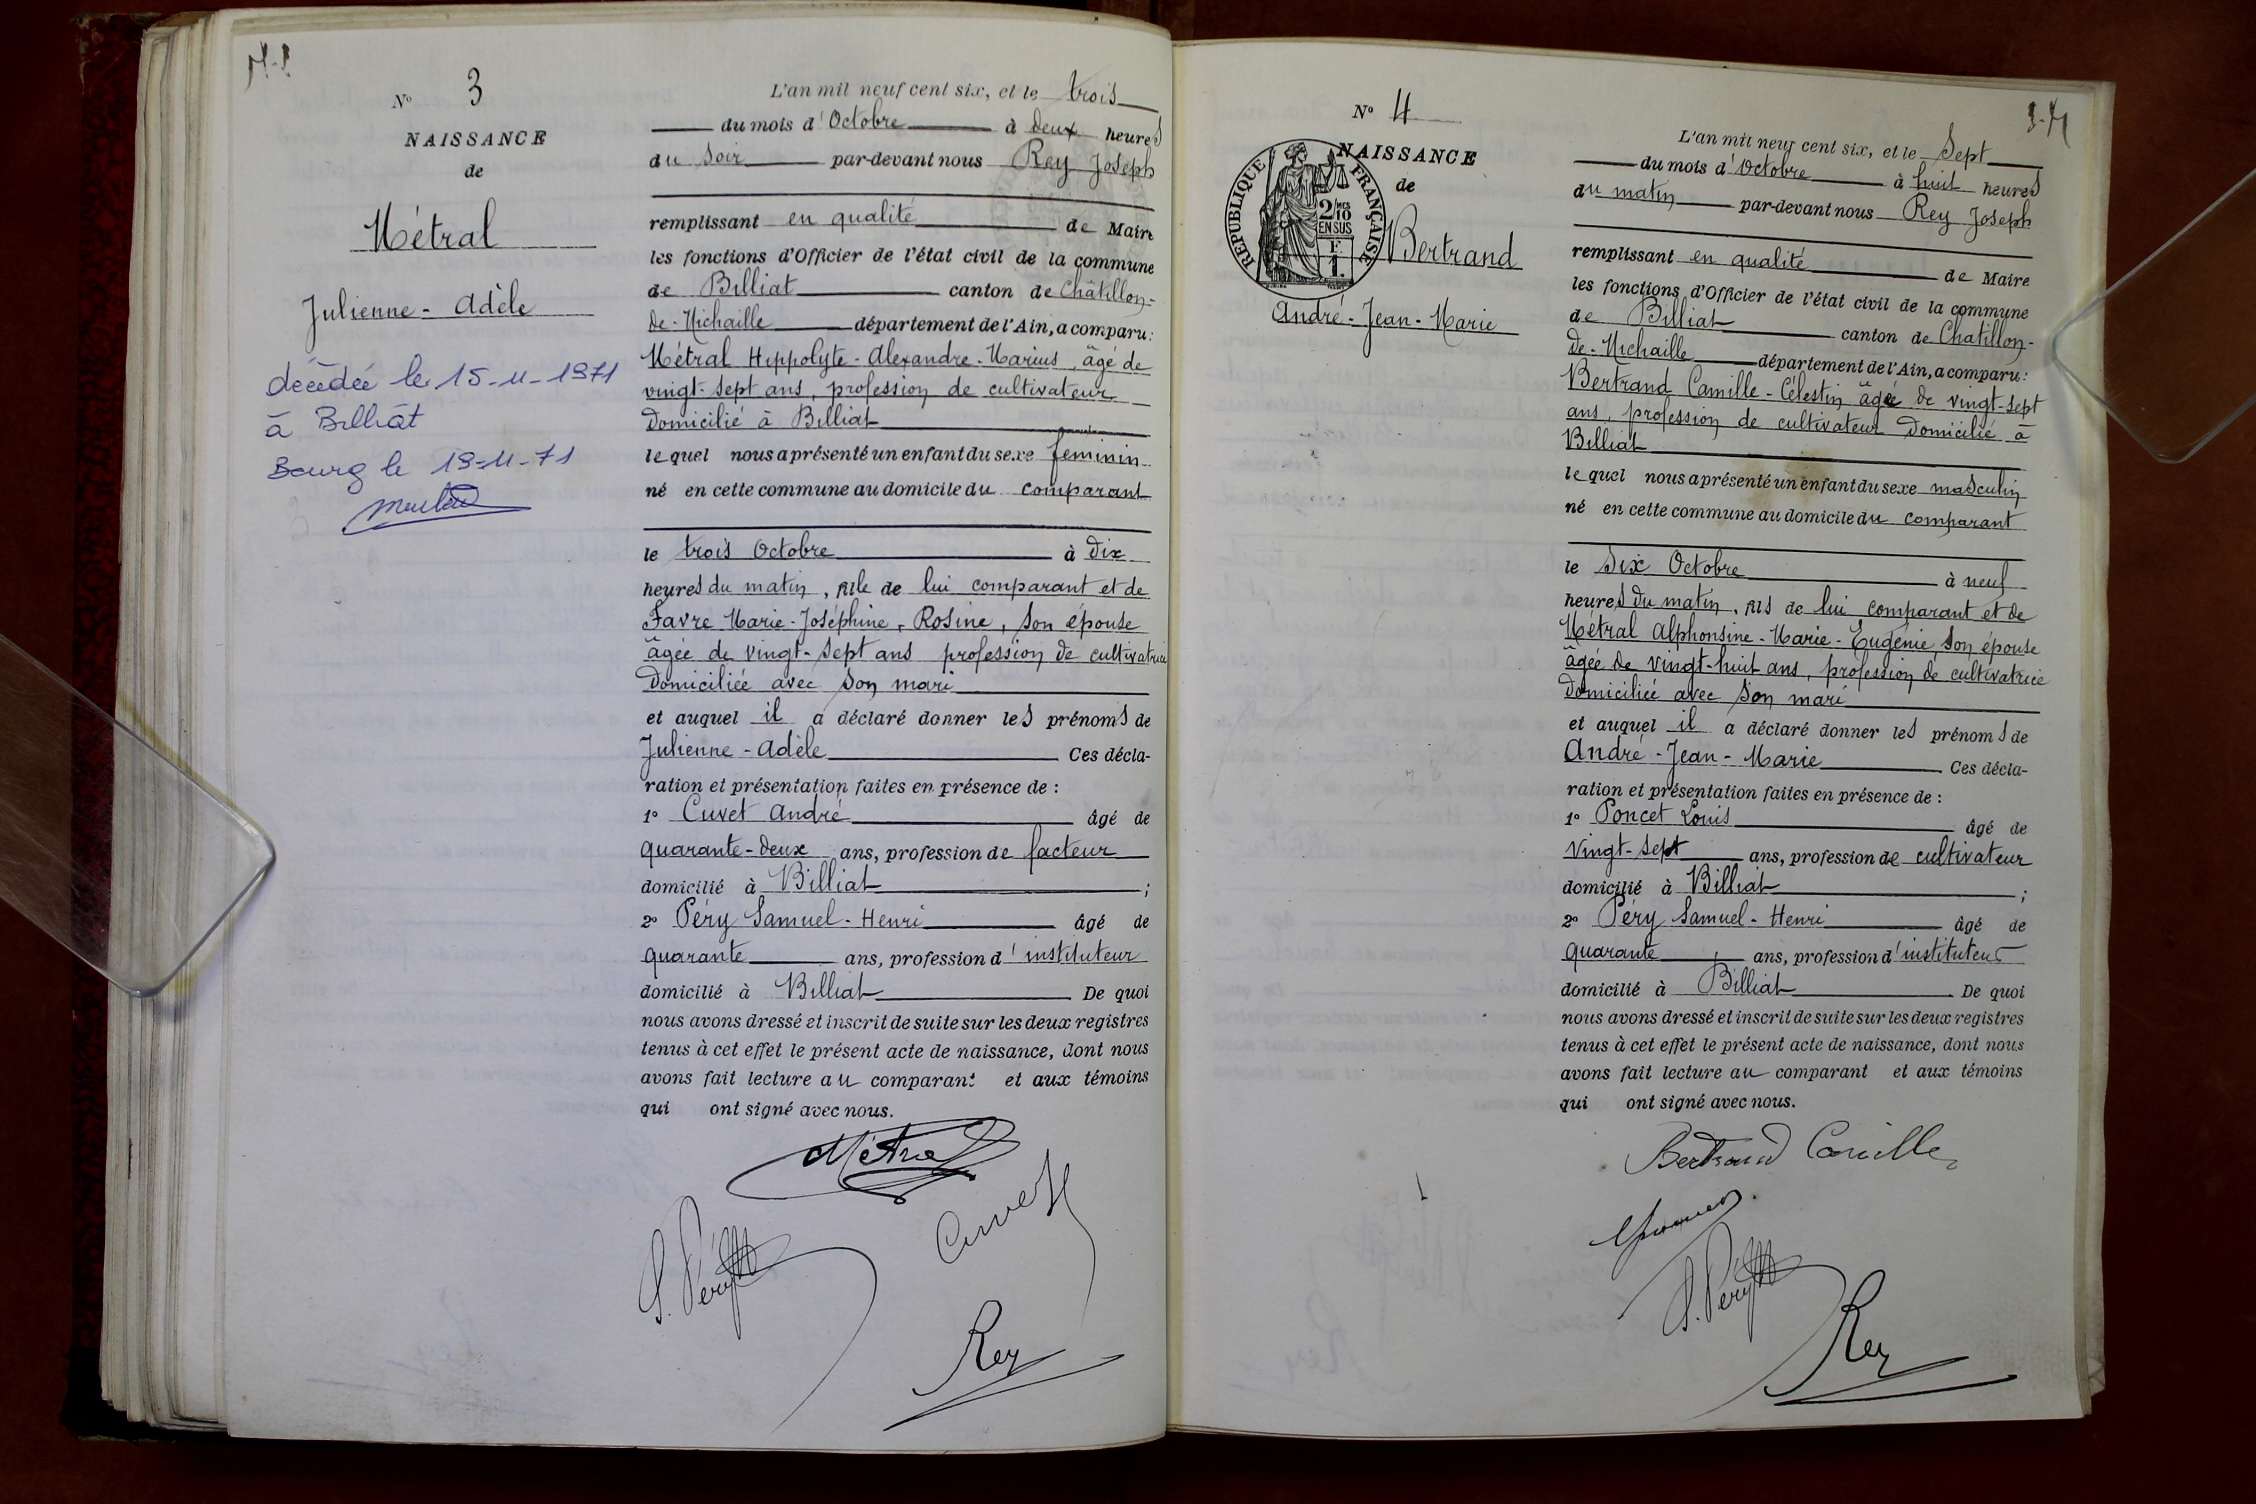 N° 3
NAISSANCE
de
Métral
Julienne - Adèle
décédée le 15-11-1971
à Billiat
Bourg le 19-11-71
L'an mil neuf cent six, et le trois
du mois d'Octobre à deux heures
du soir par-devant nous Rey Joseph
remplissant en qualité de Maire
les fonctions d'Officier de l'état civil de la commune
de Billiat canton de Châtillon-
de-Michaille département de l'Ain, a comparu:
Métral Hippolyte-Alexandre-Marius, âgé de
vingt-sept ans, profession de cultivateur
domicilié à Billiat
lequel nous a présenté un enfant du sexe féminin
né en cette commune au domicile du comparant
le trois Octobre à dix
heures du matin, fille de lui comparant et de
Favre Marie-Joséphine, Rosine, son épouse
âgée de vingt-sept ans profession de cultivatrice
domiciliée avec son mari
et auquel il a déclaré donner les prénoms de
Julienne - Adèle Ces décla-
ration et présentation faites en présence de :
1° Cuvet André âgé de
quarante-deux ans, profession de facteur
domicilié à Billiat ;
2° Péry Samuel-Henri âgé de
quarante ans, profession d'instituteur
domicilié à Billiat De quoi
nous avons dressé et inscrit de suite sur les deux registres
tenus à cet effet le présent acte de naissance, dont nous
avons fait lecture au comparant et aux témoins
qui ont signé avec nous.
Métral
Cuvet
S. Péry
Rey
N° 4
NAISSANCE
de
RÉPUBLIQUE FRANÇAISE
2/10 MES
EN SUS
F.
1.
Bertrand
André-Jean-Marie
L'an mil neuf cent six, et le sept
du mois d'Octobre à huit heures
du matin par-devant nous Rey Joseph
remplissant en qualité de Maire
les fonctions d'Officier de l'état civil de la commune
de Billiat canton de Châtillon-
de-Michaille département de l'Ain, a comparu:
Bertrand Camille-Célestin âgé de vingt-sept
ans, profession de cultivateur domicilié à
Billiat
lequel nous a présenté un enfant du sexe masculin
né en cette commune au domicile du comparant
le six Octobre à neuf
heures du matin, fils de lui comparant et de
Métral Alphonsine-Marie-Eugénie son épouse
âgée de vingt-huit ans, profession de cultivatrice
domiciliée avec son mari
et auquel il a déclaré donner les prénoms de
André-Jean-Marie Ces décla-
ration et présentation faites en présence de :
1° Poncet Louis âgé de
vingt-sept ans, profession de cultivateur
domicilié à Billiat ;
2° Péry Samuel-Henri âgé de
quarante ans, profession d'instituteur
domicilié à Billiat De quoi
nous avons dressé et inscrit de suite sur les deux registres
tenus à cet effet le présent acte de naissance, dont nous
avons fait lecture au comparant et aux témoins
qui ont signé avec nous.
Bertrand Camille
S. Péry
Rey